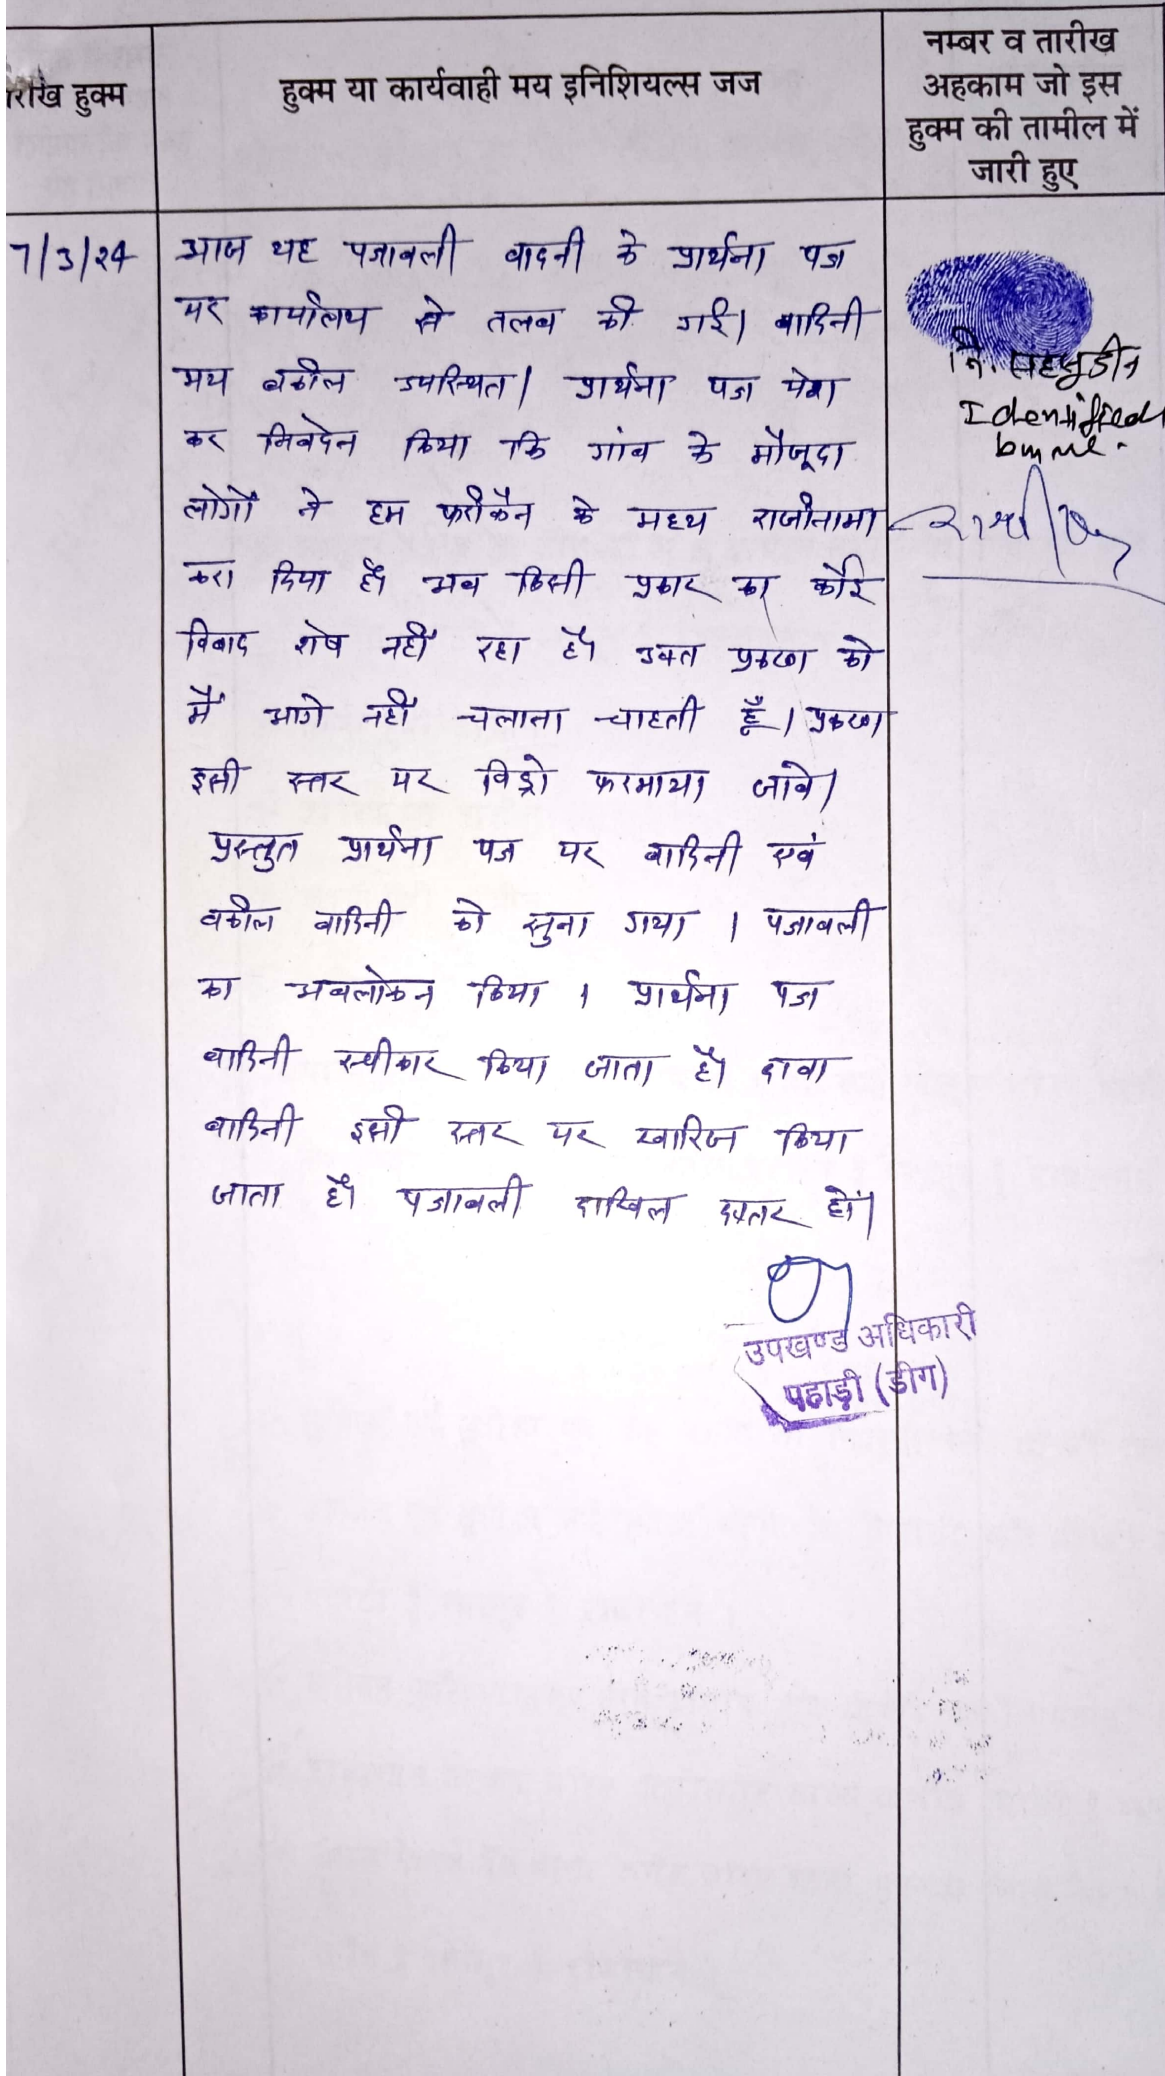 हुक्म
हुक्म या कार्यवाही मय इनिशियल्स जज
नम्बर व तारीख
अहकाम जो इस
हुक्म की तामील में
जारी हुए
7/3/24
आज यह पत्रावली वादनी के प्रार्थना पत्र
पर कार्यालय से तलब की गई। वादिनी
मय वकील उपस्थित। प्रार्थना पत्र पेश
कर निवदेन किया कि गांव के मौजूदा
लोगों ने हम फरीकैन के मध्य राजीनामा
करा दिया है। अब किसी प्रकार का कोई
विवाद शेष नहीं रहा है। उक्त प्रकरण को
मैं आगे नहीं चलाना चाहती हूँ। प्रकरण
इसी स्तर पर विड्रो फरमाया जावे।
प्रस्तुत प्रार्थना पत्र पर वादिनी एवं
वकील वादिनी को सुना गया । पत्रावली
का अवलोकन किया । प्रार्थना पत्र
वादिनी स्वीकार किया जाता है। दावा
वादिनी इसी स्तर पर खारिज किया
जाता है। पत्रावली दाखिल दफ्तर हों।
नि.
Identified
by me.
उपखण्ड अधिकारी
पहाड़ी (डीग)